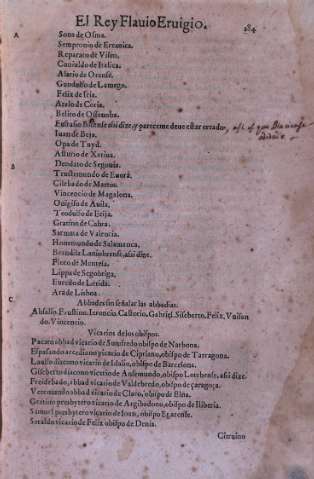 El Rey Flauio Eruigio.
284
A
Sona de Osma.
Sempronio de Ercauica.
Reparato de Viseo.
Cuniuldo de Italica.
Alario de Orense.
Gundulfo de Lamego.
Felix de Iria.
Atalo de Coria.
Belito de Ossonoba.
Eustasio assi dize, y parece me deue estar errado,
Iuan de Beja.
Opa de Tuyd.
Asturio de Xatiua.
Deodato de Segouia.
B
Tractemundo de Euora.
Cilebado de Martos.
Vincencio de Magalona.
Onigiso de Auila.
Teodulfo de Ecija.
Gratino de Cabra.
Sarmata de Valencia.
Honemundo de Salamanca.
Brandila Laniobrense, assi dize.
Pinto de Mentesa.
Lippa de Segobriga.
Euredo de Lerida.
Ara de Lisboa.
C
Abbades sin señalar las abbadias.
Absalio, Faustino, Castorio, Gabriel, Siseberto, Felix,
do, Vincencio.
Vicarios de los obispos.
Pacato abbad vicario de Suniefredo obispo de Narbona.
Espasando arcediano vicario de Cipriano, obispo de Tarragona.
Laulfo diacono vicario de Idalio, obispo de Barcelona.
Giseberto diacono vicario de Ansemundo, obispo Lotebense, assi dize.
Freidebado, abbad vicario de Valderedo, obispo de çaragoça.
Veremundo abbad vicario de Claro, obispo de Elna.
Gratino presbytero vicario de Argibodono, obispo de Iliberia.
Samuel presbytero vicario de Ioan, obispo Egarense.
Sesaldo vicario de Felix obispo de Denia.
Citruino